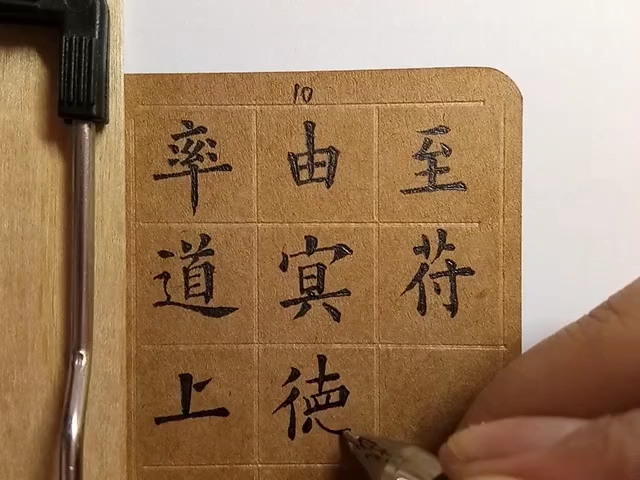 10
率由至
道㝠苻
上徳